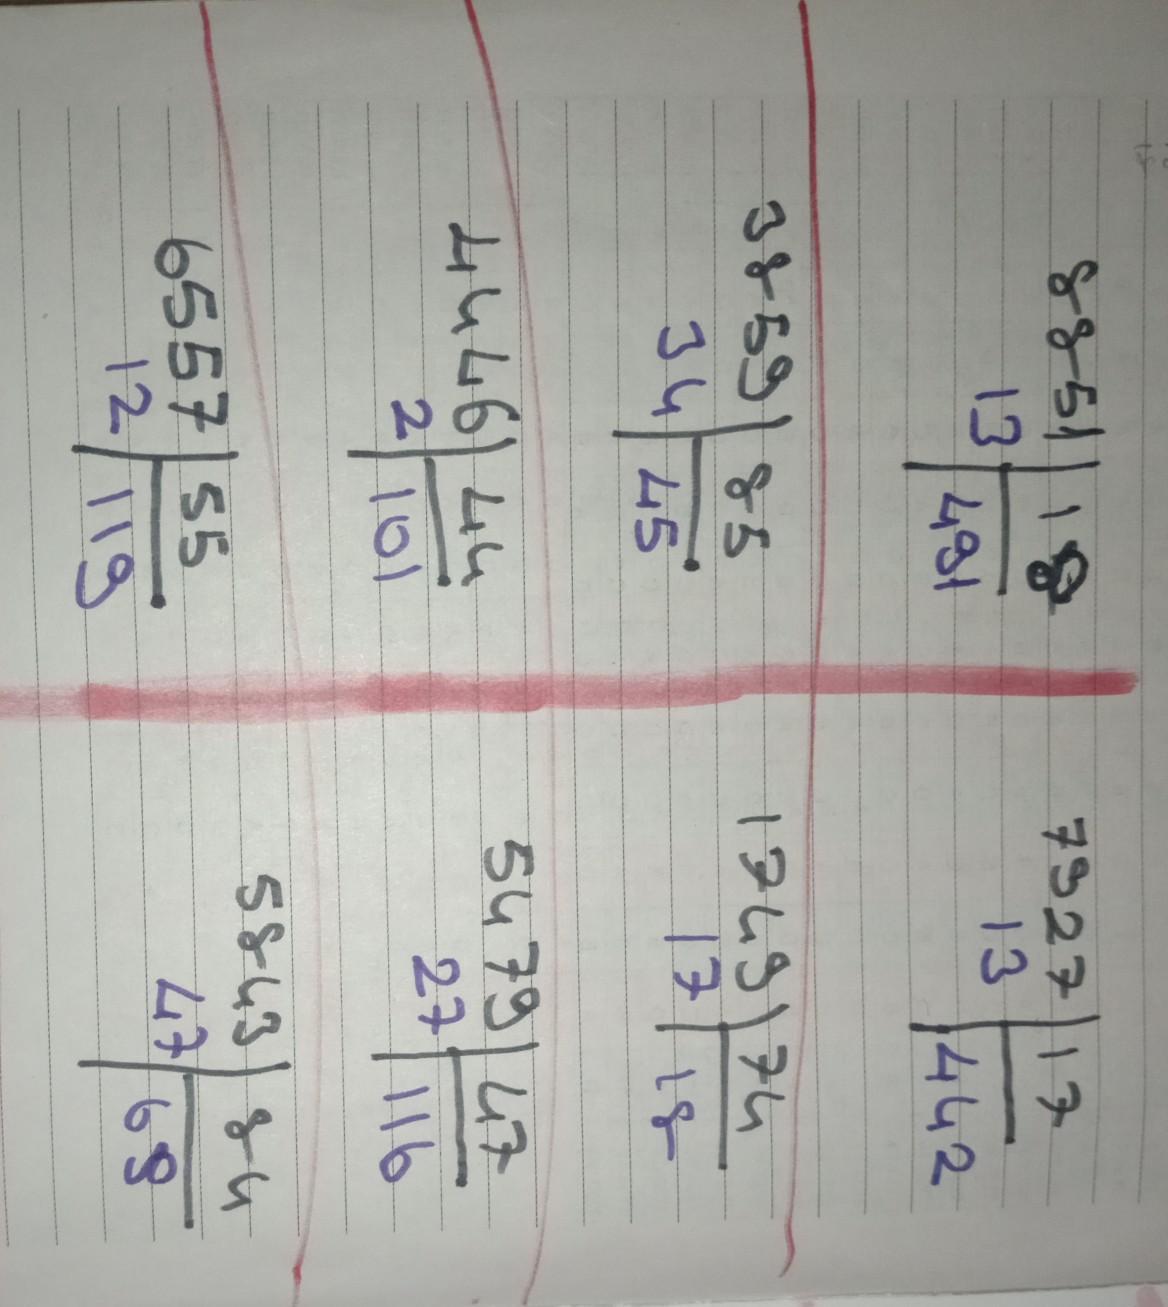 8851 18 7927 17
13 491 13 442
3859 85 1749 74
34 45 17 18
4446 44 5479 47
2 101 27 116
6557 55 5843 84
12 119 47 69